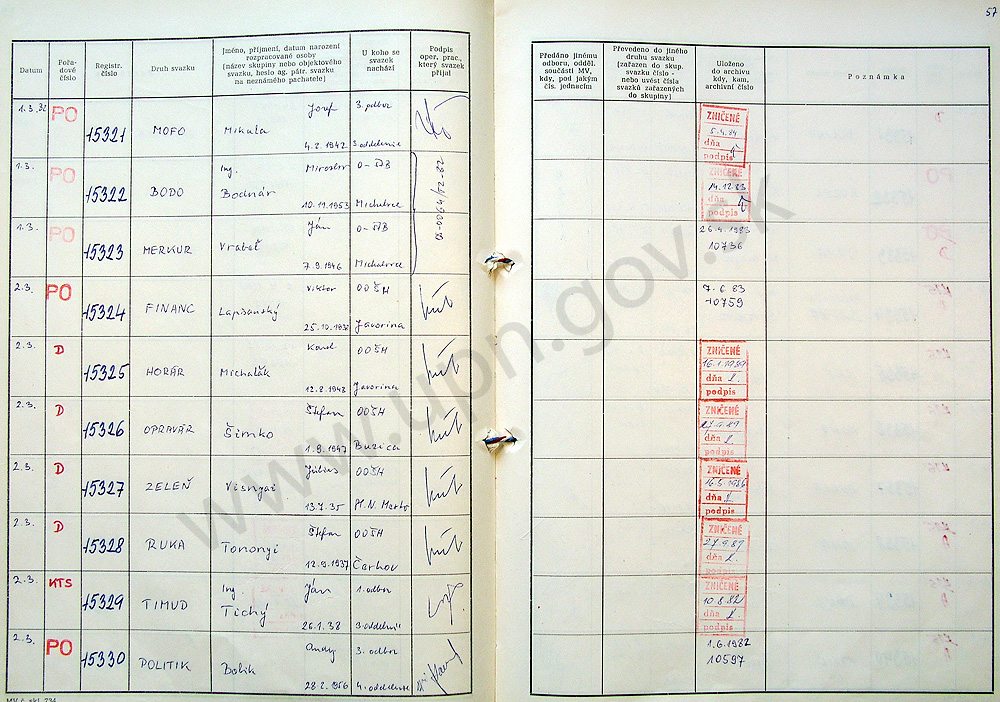 57
Datum
Pořa-
dové
číslo
Registr.
číslo
Druh svazku
Jméno, příjmení, datum narození
rozpracované osoby
(název skupiny nebo objektového
svazku, heslo ag. pátr. svazku
na neznámého pachatele)
U koho se
svazek
nachází
Podpis
oper. prac.,
který svazek
přijal
Předáno jinému
odboru, odděl.
součásti MV,
kdy, pod jakým
čís. jednacím
Převedeno do jiného
druhu svazku
(zařazen do skup.
svazku číslo -
nebo uvést čísla
svazků zařazených
do skupiny)
Uloženo
do archivu
kdy, kam,
archivní číslo
Poznámka
1.3.82 PO 15321 MOFO Jozef Mikula 4.2.1942 3. odbor 3. oddelenie
ZNIČENÉ 5.4.84 dňa podpis
1.3. PO 15322 BODO Ing. Miroslav Bodnár 10.11.1953 O-ŠtB Michalovce
ZNIČENÉ 14.12.83 dňa podpis
1.3. PO 15323 MERKUR Ján Vrabeľ 7.9.1946 O-ŠtB Michalovce
26.4.1983
10736
2.3. PO 15324 FINANC Viktor Lapšanský 25.10. OOŠH Javorina
7.6.83
10759
2.3. D 15325 HORÁR Karel Michalák 12.8.1943 OOŠH Javorina
ZNIČENÉ 16.1.1989 dňa podpis
2.3. D 15326 OPRAVÁR Štefan Šimko 1.9.1947 OOŠH Buzica
ZNIČENÉ 27.9.89 dňa podpis
2.3. D 15327 ZELEŇ Július Visnyai 13.7.35 OOŠH
ZNIČENÉ 16.5.1986 dňa podpis
2.3. D 15328 RUKA Štefan Tononyi 12.9.1937 OOŠH Čerhov
ZNIČENÉ 27.9.89 dňa podpis
2.3. KTS 15329 TIMUD Ing. Ján Tichý 26.1.38 1. odbor 3. oddelenie
ZNIČENÉ 10.8.82 dňa podpis
2.3. PO 15330 POLITIK Andrej Bobik 28.2.1956 3. odbor 4. oddelenie
1.6.1982
10597
www.upn.gov.sk